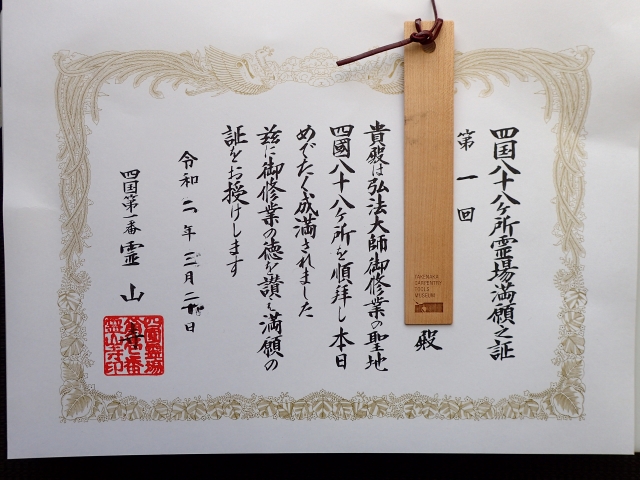 四国八十八ヶ所霊場満願之証
第一回
殿
貴殿は弘法大師御修業の聖地
四國八十八ヶ所を順拝し本日
めでたく成満されました
茲に御修業の徳を讃え満願の
証をお授けします
令和二年三月二十日
四国第一番霊山寺
TAKENAKA
CARPENTRY
TOOLS
MUSEUM